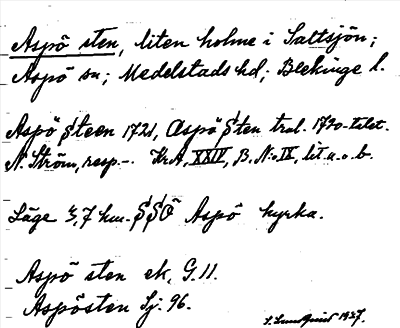 Aspö sten, liten holme i Saltsjön;
Aspö sn; Medelstads hd; Blekinge l.
Aspö Steen 1721, Æspö Sten trol. 1700-talet.
N. Ström, resp. -. Kr A, XXIV, B, No IX, lit a. o. b.
Läge 3,7 km. SSÖ Aspö kyrka.
Aspö sten ek. G. 11.
Aspösten Sj. 96.
S. Lundquist 1927.